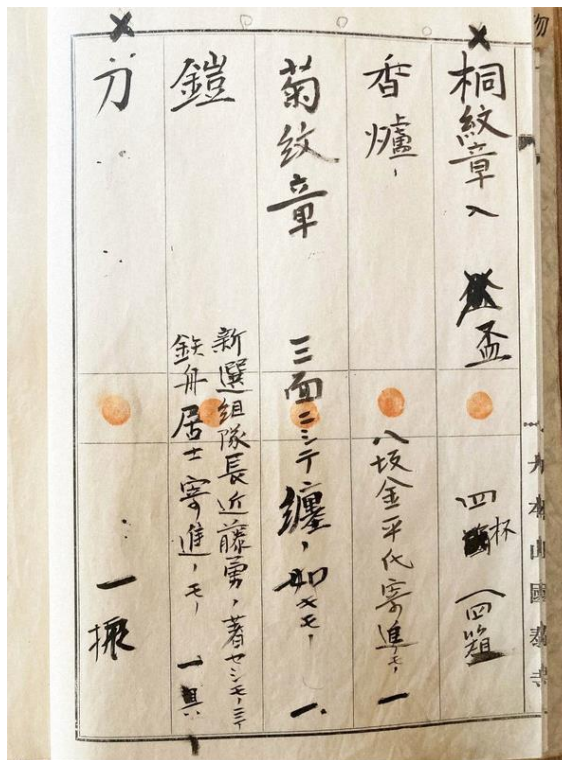 桐紋章入 盃
四杯 (四箱
香爐、
八坂金平代寄進モノ 一
菊紋章
三面ニシテ纏ノ如キモノ 一、
鎧
新選組隊長近藤勇ノ著セシモノニテ
鉄舟居士寄進ノモノ 一具
刀
一振
大本山國泰寺